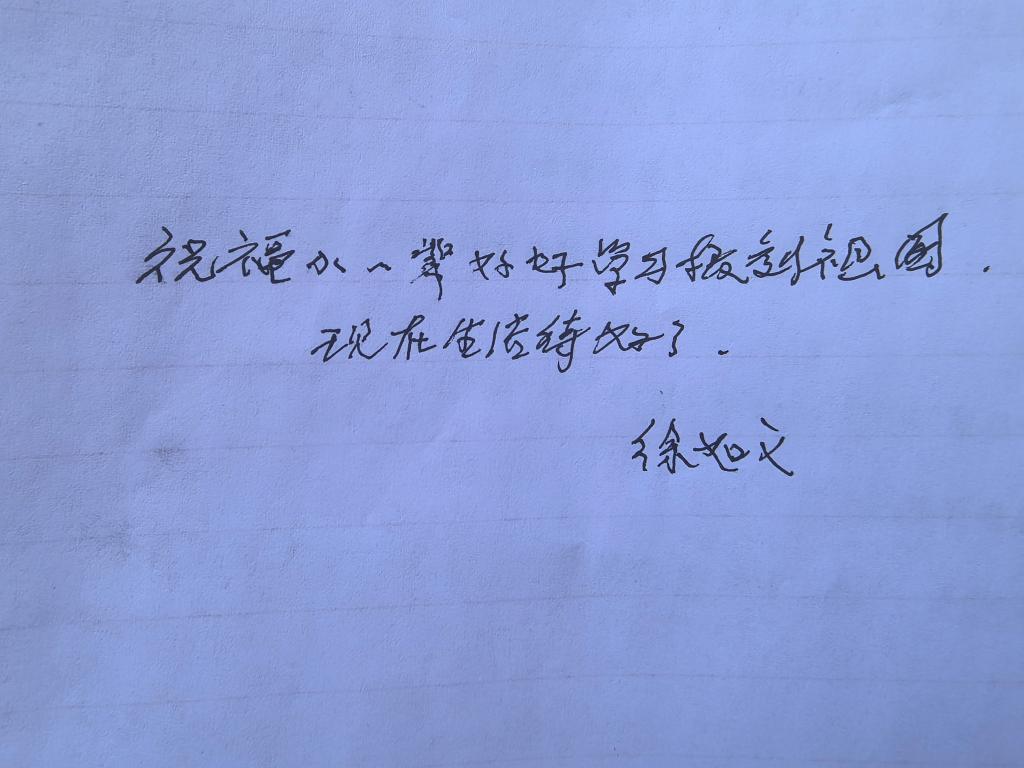 祝福小一辈好好学习报到祖国.
现在生活待好了.
徐如文